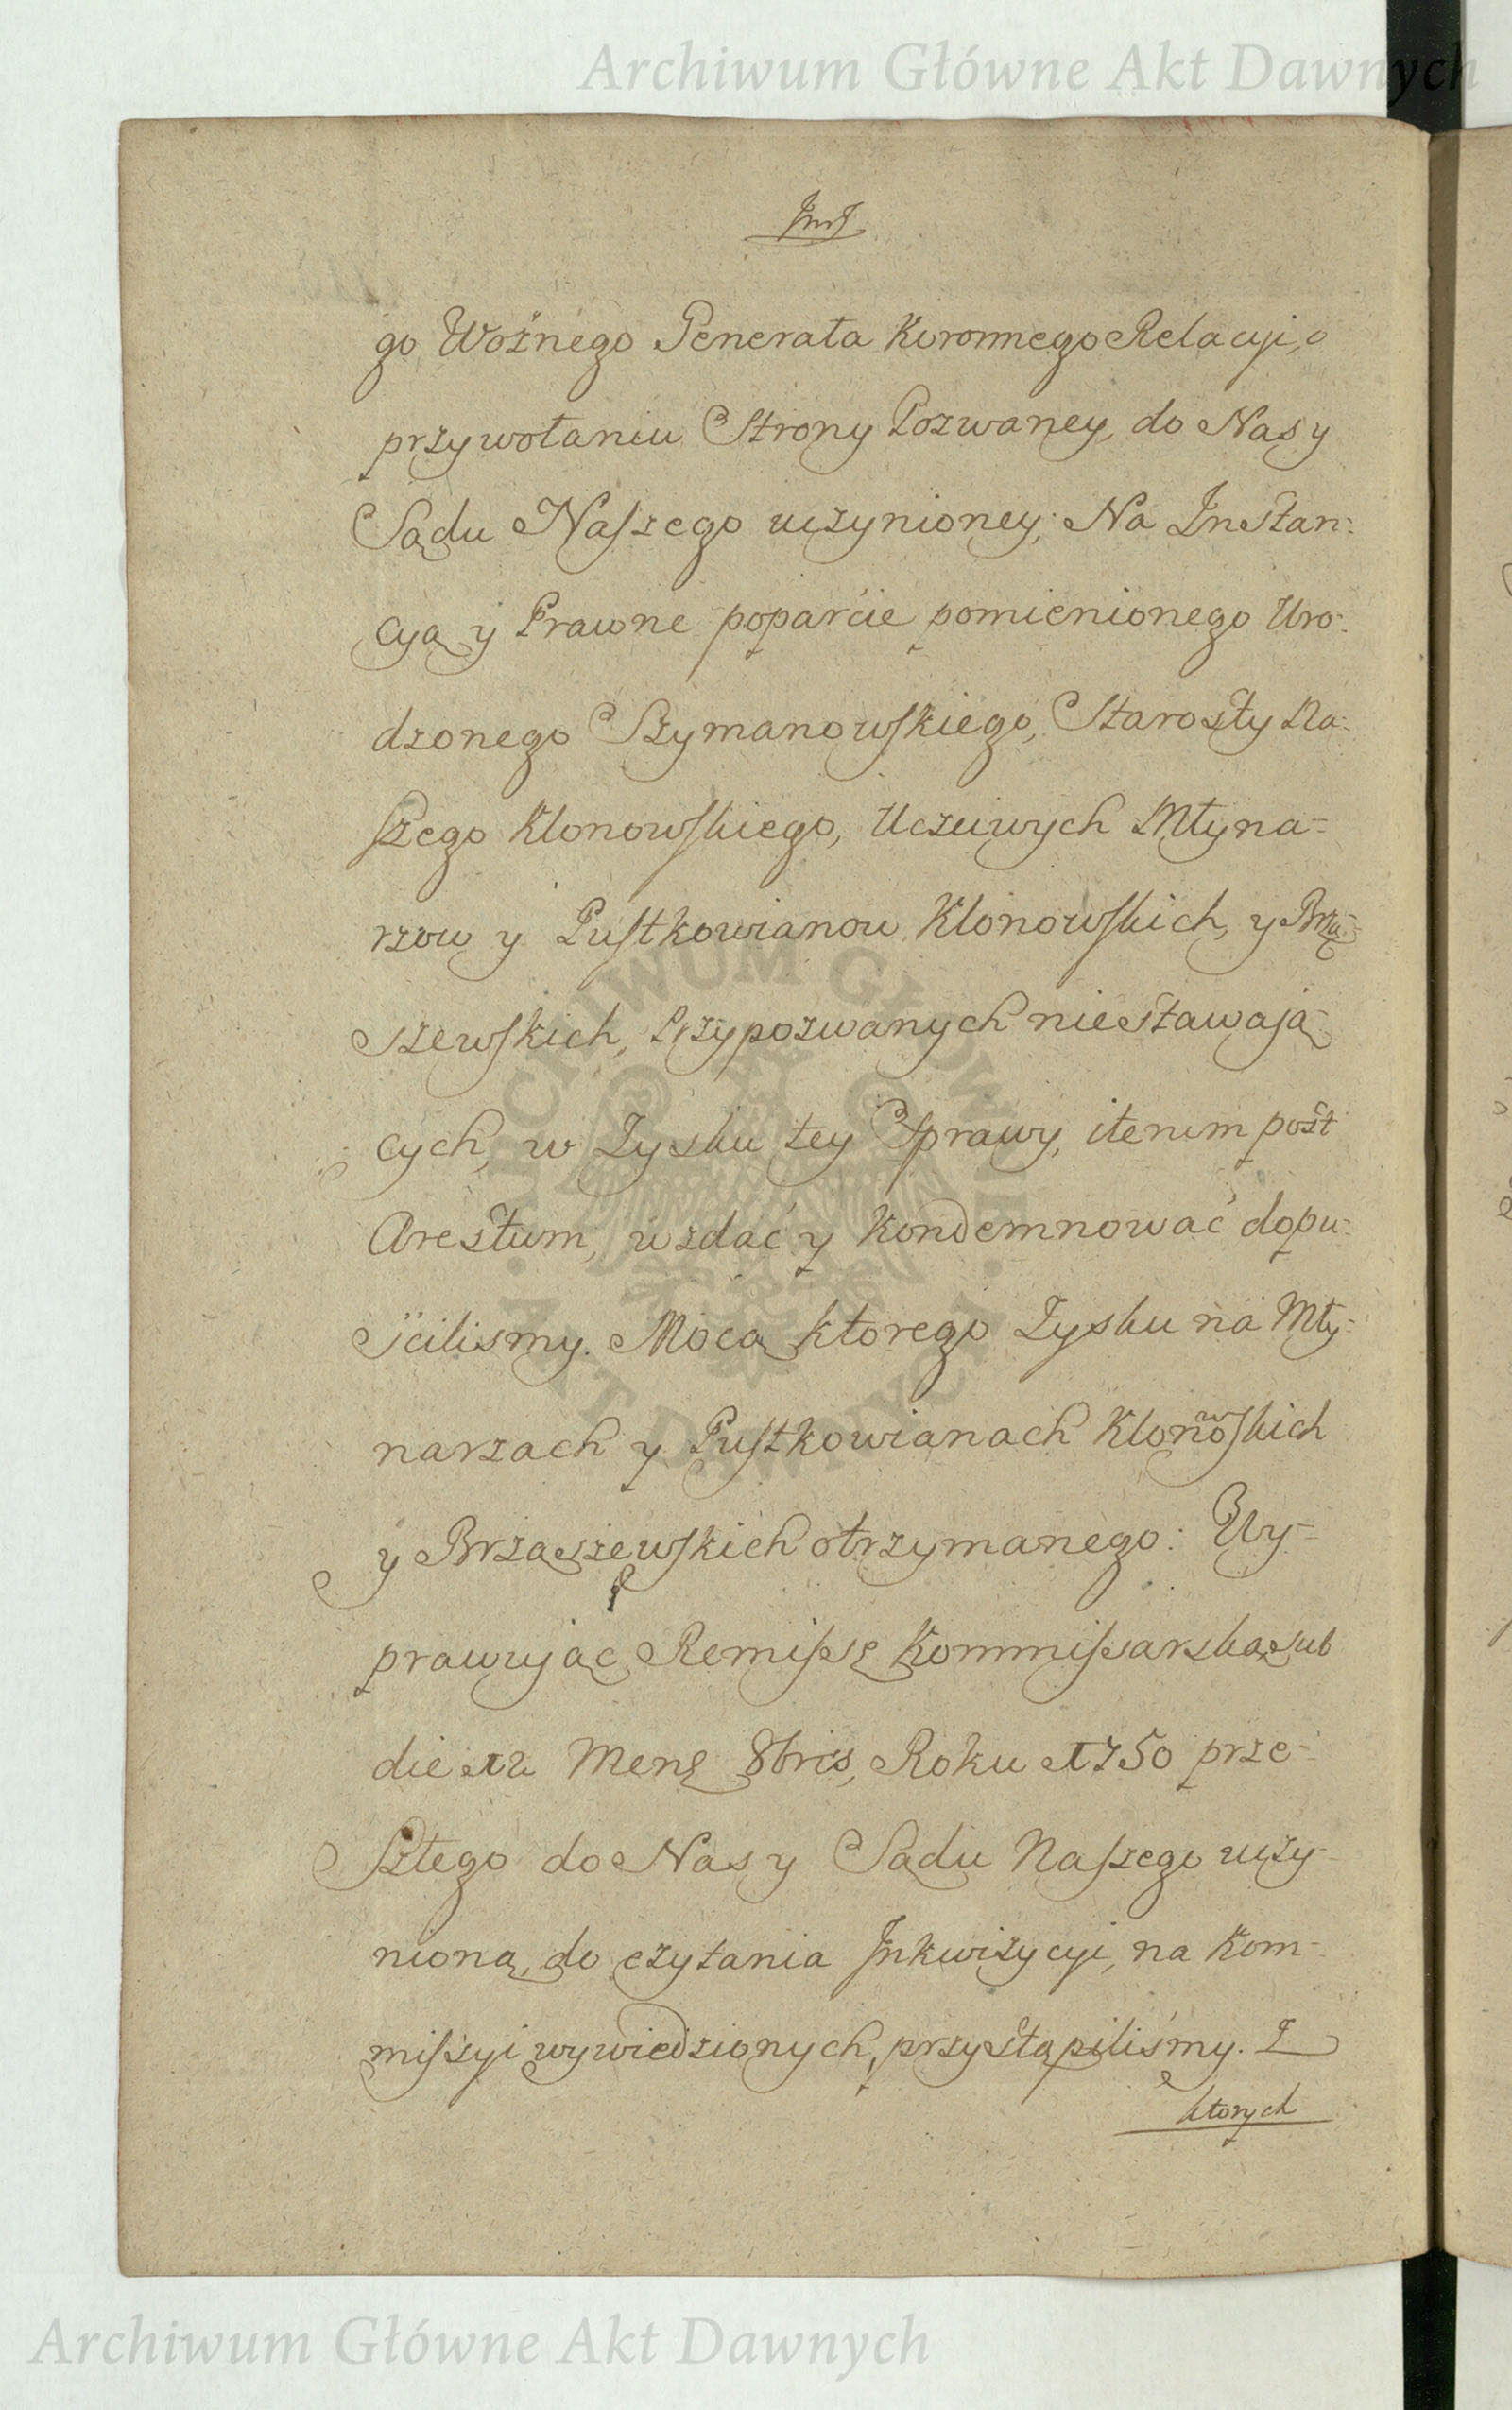 Archiwum Główne Akt Dawnych
JmJ
go Woźnego Generała Koronnego Relacyi, o
przywołaniu Strony Pozwaney, do Nas y
Sądu Naszego uczynioney; Na Instan:
cyą y Prawne poparcie pomienionego Uro:
dzonego Szymanowskiego, Starosty Na:
szego Klonowskiego, Uczciwych Młyna=
rzow y Pustkowianow Klonowskich, y Brzą=
szewskich, Przypozwanych niestawają
cych, w Zysku tey Sprawy, iterum post
Arestum, wzdać y Kondemnować dopu:
ściliśmy. Mocą ktorego Zysku na Mły:
narzach y Pustkowianach Klonowskich
y Brząszewskich otrzymanego: Wy=
prawując Remissę Kommissarską sub
die 12 Mens 8bris, Roku 1750 prze=
szłego do Nas y Sądu Naszego uczy=
nioną, do czytania Inkwizycyi, na Kom=
missyi wywiedzionych, przystąpiliśmy. Z
ktorych
ARCHIWUM GŁÓWNE · AKT DAWNYCH ·
Archiwum Główne Akt Dawnych